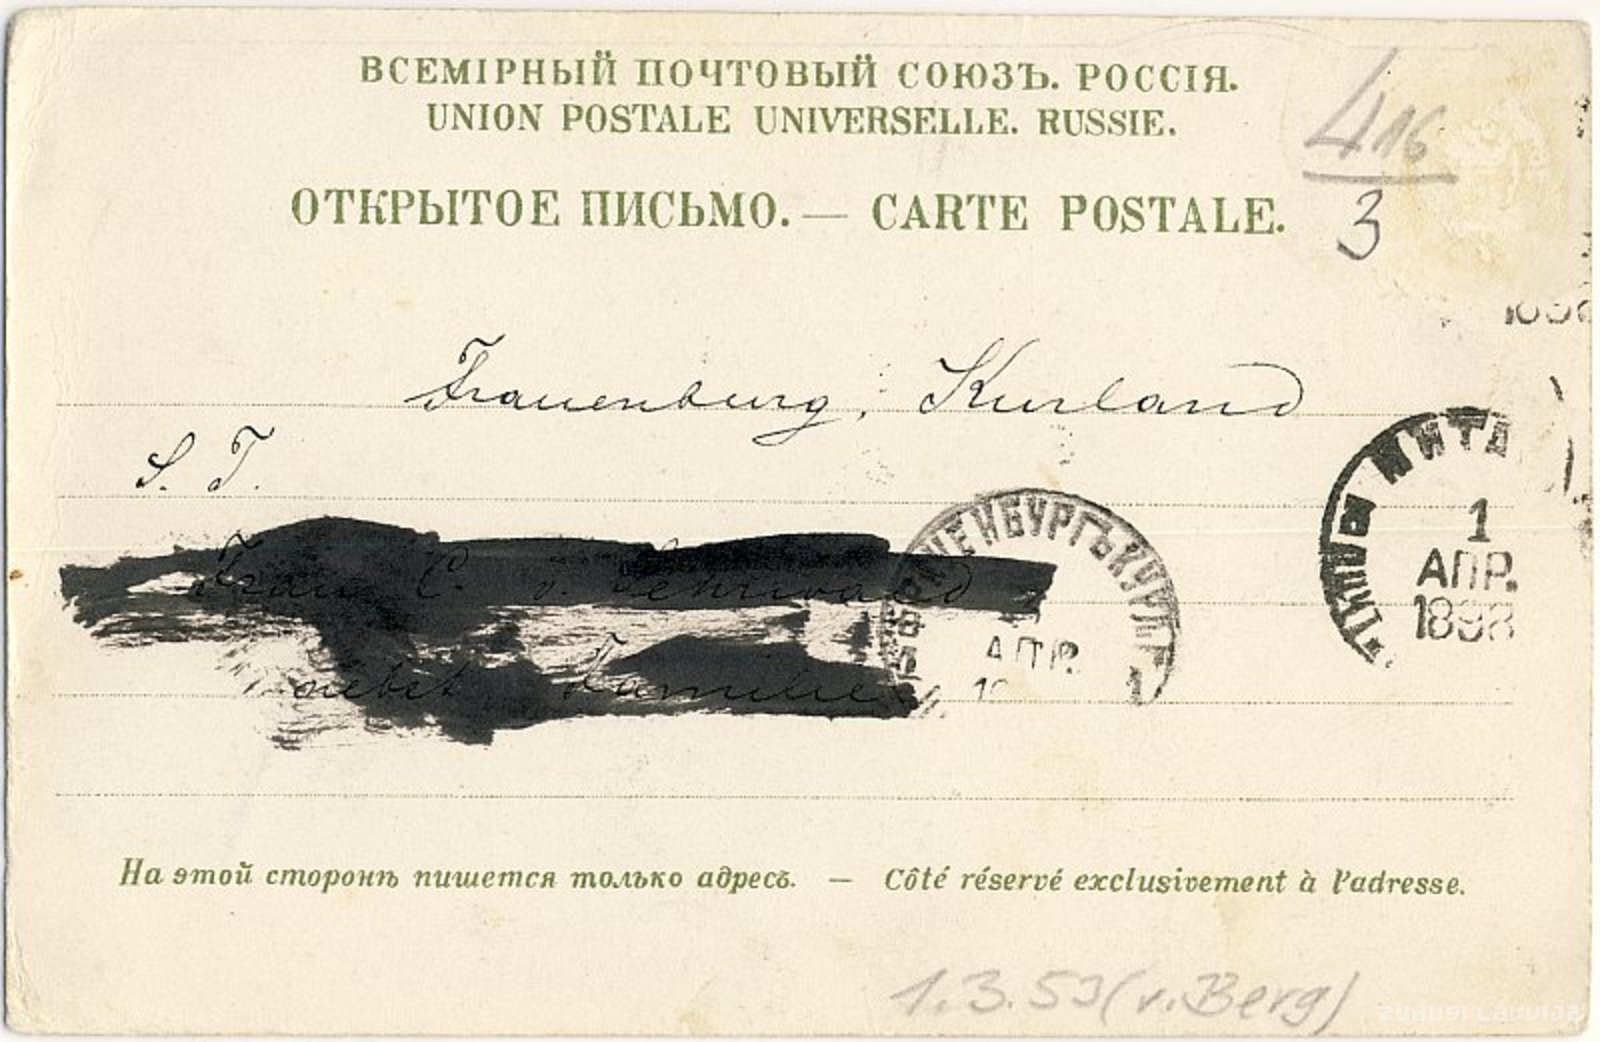 ВСЕМІРНЫЙ ПОЧТОВЫЙ СОЮЗЪ. РОССІЯ.
UNION POSTALE UNIVERSELLE. RUSSIE.
416
3
ОТКРЫТОЕ ПИСЬМО. — CARTE POSTALE.
Frauenburg, Kurland
S. T.
МИТА
1
АПР.
1898
ФРАУЕНБУРГЪ КУРЛ. Г
АПР.
Frau C. v.
nebst Familie
На этой сторонѣ пишется только адресъ. — Côté réservé exclusivement à l'adresse.
1.3.53 (v. Berg)
ZUDUSI LATVIJA